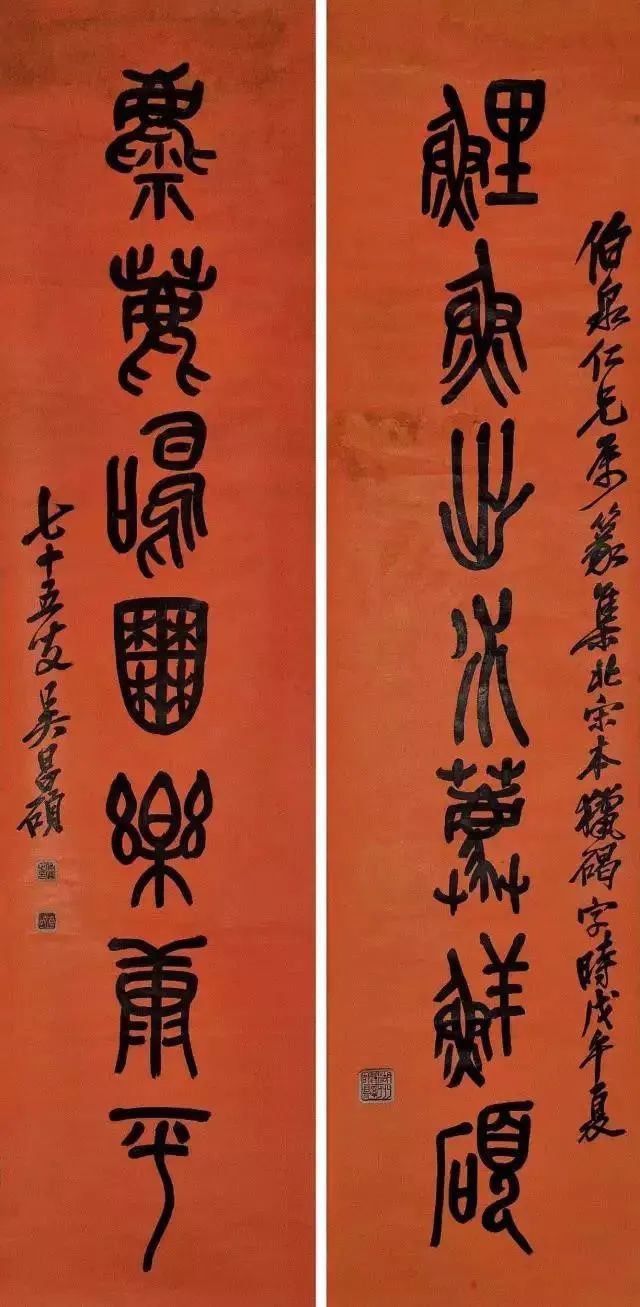 伯泉仁兄屬篆集北宋本獵碣字時戊午夏
鯉魚出水鮮碩
麋鹿鳴囿樂康平
七十五叟吳昌碩